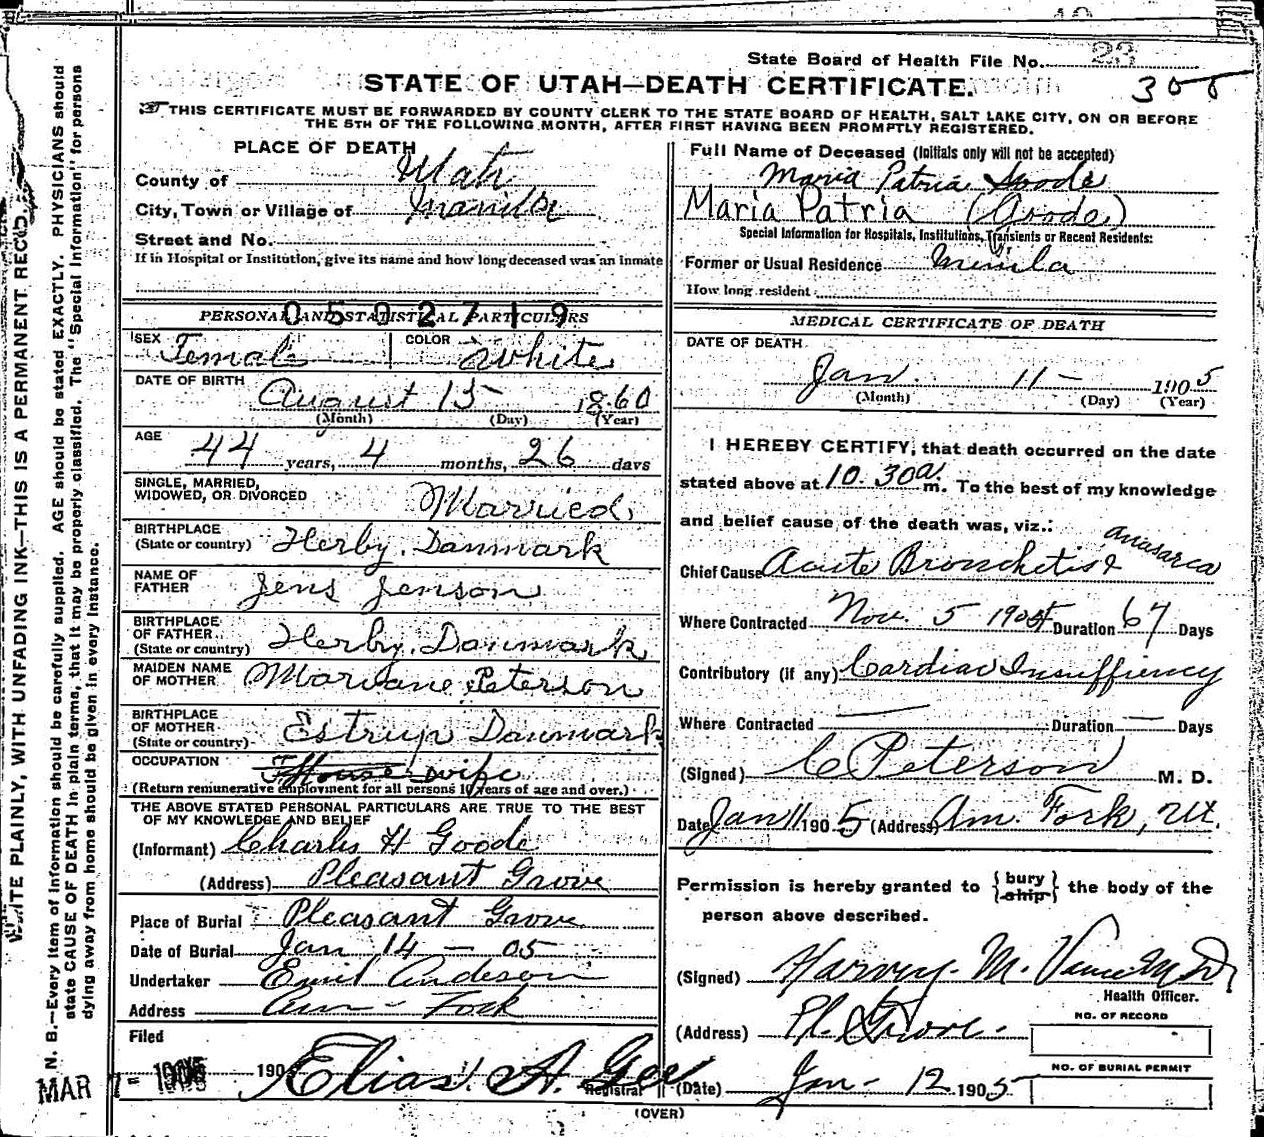 State Board of Health File No. 23
STATE OF UTAH—DEATH CERTIFICATE.
305
THIS CERTIFICATE MUST BE FORWARDED BY COUNTY CLERK TO THE STATE BOARD OF HEALTH, SALT LAKE CITY, ON OR BEFORE
THE 5TH OF THE FOLLOWING MONTH, AFTER FIRST HAVING BEEN PROMPTLY REGISTERED.
PLACE OF DEATH
County of Utah
City, Town or Village of Manila
Street and No.
If in Hospital or Institution, give its name and how long deceased was an inmate
0502719
PERSONAL AND STATISTICAL PARTICULARS
SEX Female COLOR White
DATE OF BIRTH August 15 1860
(Month) (Day) (Year)
AGE
44 years, 4 months, 26 days
SINGLE, MARRIED,
WIDOWED, OR DIVORCED Married
BIRTHPLACE
(State or country) Herby, Danmark
NAME OF
FATHER Jens Jenson
BIRTHPLACE
OF FATHER
(State or country) Herby, Danmark
MAIDEN NAME
OF MOTHER Mariane Peterson
BIRTHPLACE
OF MOTHER
(State or country) Estrup Danmark
OCCUPATION House wife
(Return remunerative employment for all persons 10 years of age and over.)
THE ABOVE STATED PERSONAL PARTICULARS ARE TRUE TO THE BEST
OF MY KNOWLEDGE AND BELIEF
(Informant) Charles H Goode
(Address) Pleasant Grove
Place of Burial Pleasant Grove
Date of Burial Jan 14 – 05
Undertaker Emil Anderson
Address Am – Fork
Filed
MAR 1905 190 Elias A. Gee
Registrar
Full Name of Deceased (Initials only will not be accepted)
Maria Patria Goode
Maria Patria (Goode)
Special Information for Hospitals, Institutions, Transients or Recent Residents:
Former or Usual Residence Manila
How long resident
MEDICAL CERTIFICATE OF DEATH
DATE OF DEATH
Jan. 11 – 1905
(Month) (Day) (Year)
I HEREBY CERTIFY, that death occurred on the date
stated above at 10.30 a. m. To the best of my knowledge
and belief cause of the death was, viz.:
Chief Cause Acute Bronchetis & anasarca
Where Contracted Nov. 5 1904 Duration 67 Days
Contributory (if any) Cardiac Insuffiency
Where Contracted — Duration — Days
(Signed) C Peterson M. D.
Date Jan 11 1905 (Address) Am. Fork, Ut.
Permission is hereby granted to {bury ship} the body of the
person above described.
(Signed) Harvey M. Vance M.D.
Health Officer.
(Address) Pl. Grove.
NO. OF RECORD
(Date) Jan – 12 1905
NO. OF BURIAL PERMIT
(OVER)
WRITE PLAINLY, WITH UNFADING INK—THIS IS A PERMANENT RECORD.
N. B.—Every item of information should be carefully supplied. AGE should be stated EXACTLY. PHYSICIANS should
state CAUSE OF DEATH in plain terms, that it may be properly classified. The "Special Information" for persons
dying away from home should be given in every instance.